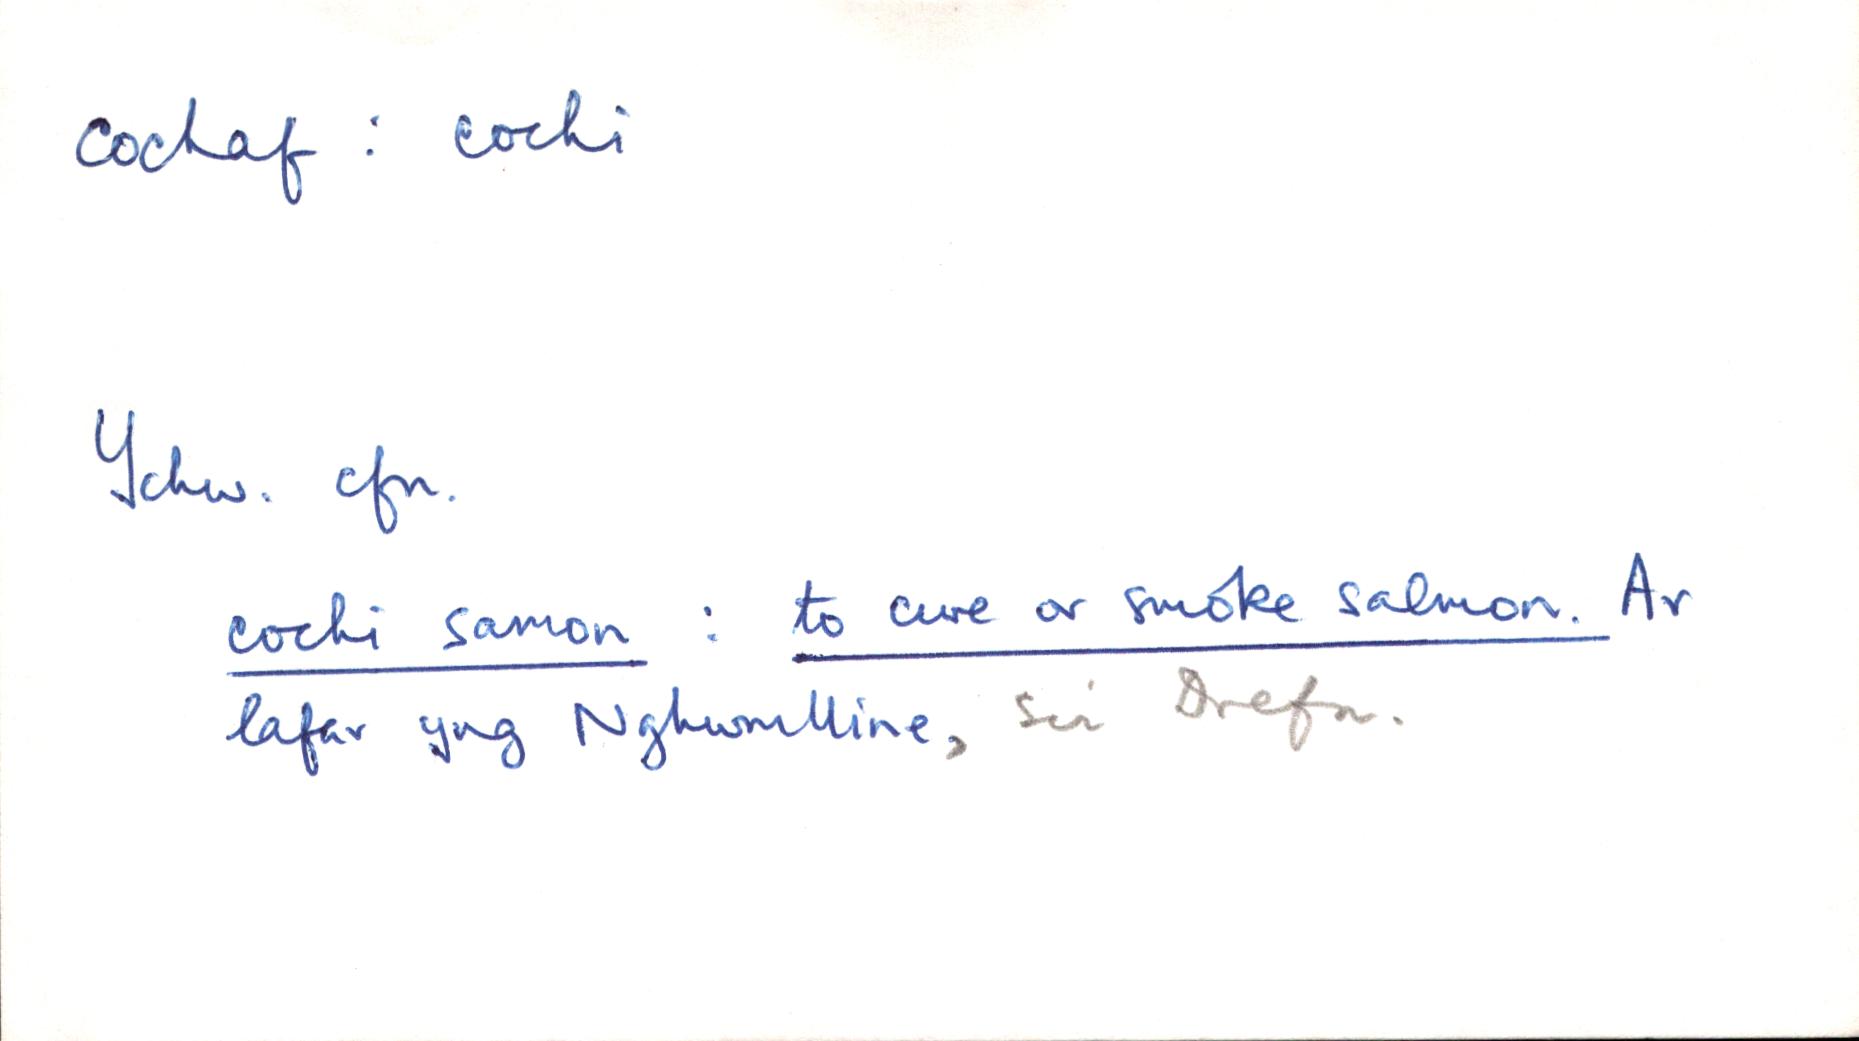 cochaf : cochi
Ychw. cfn.
cochi samon : to cure or smoke salmon. Ar
lafar yng Nghwmlline, sir Drefn.